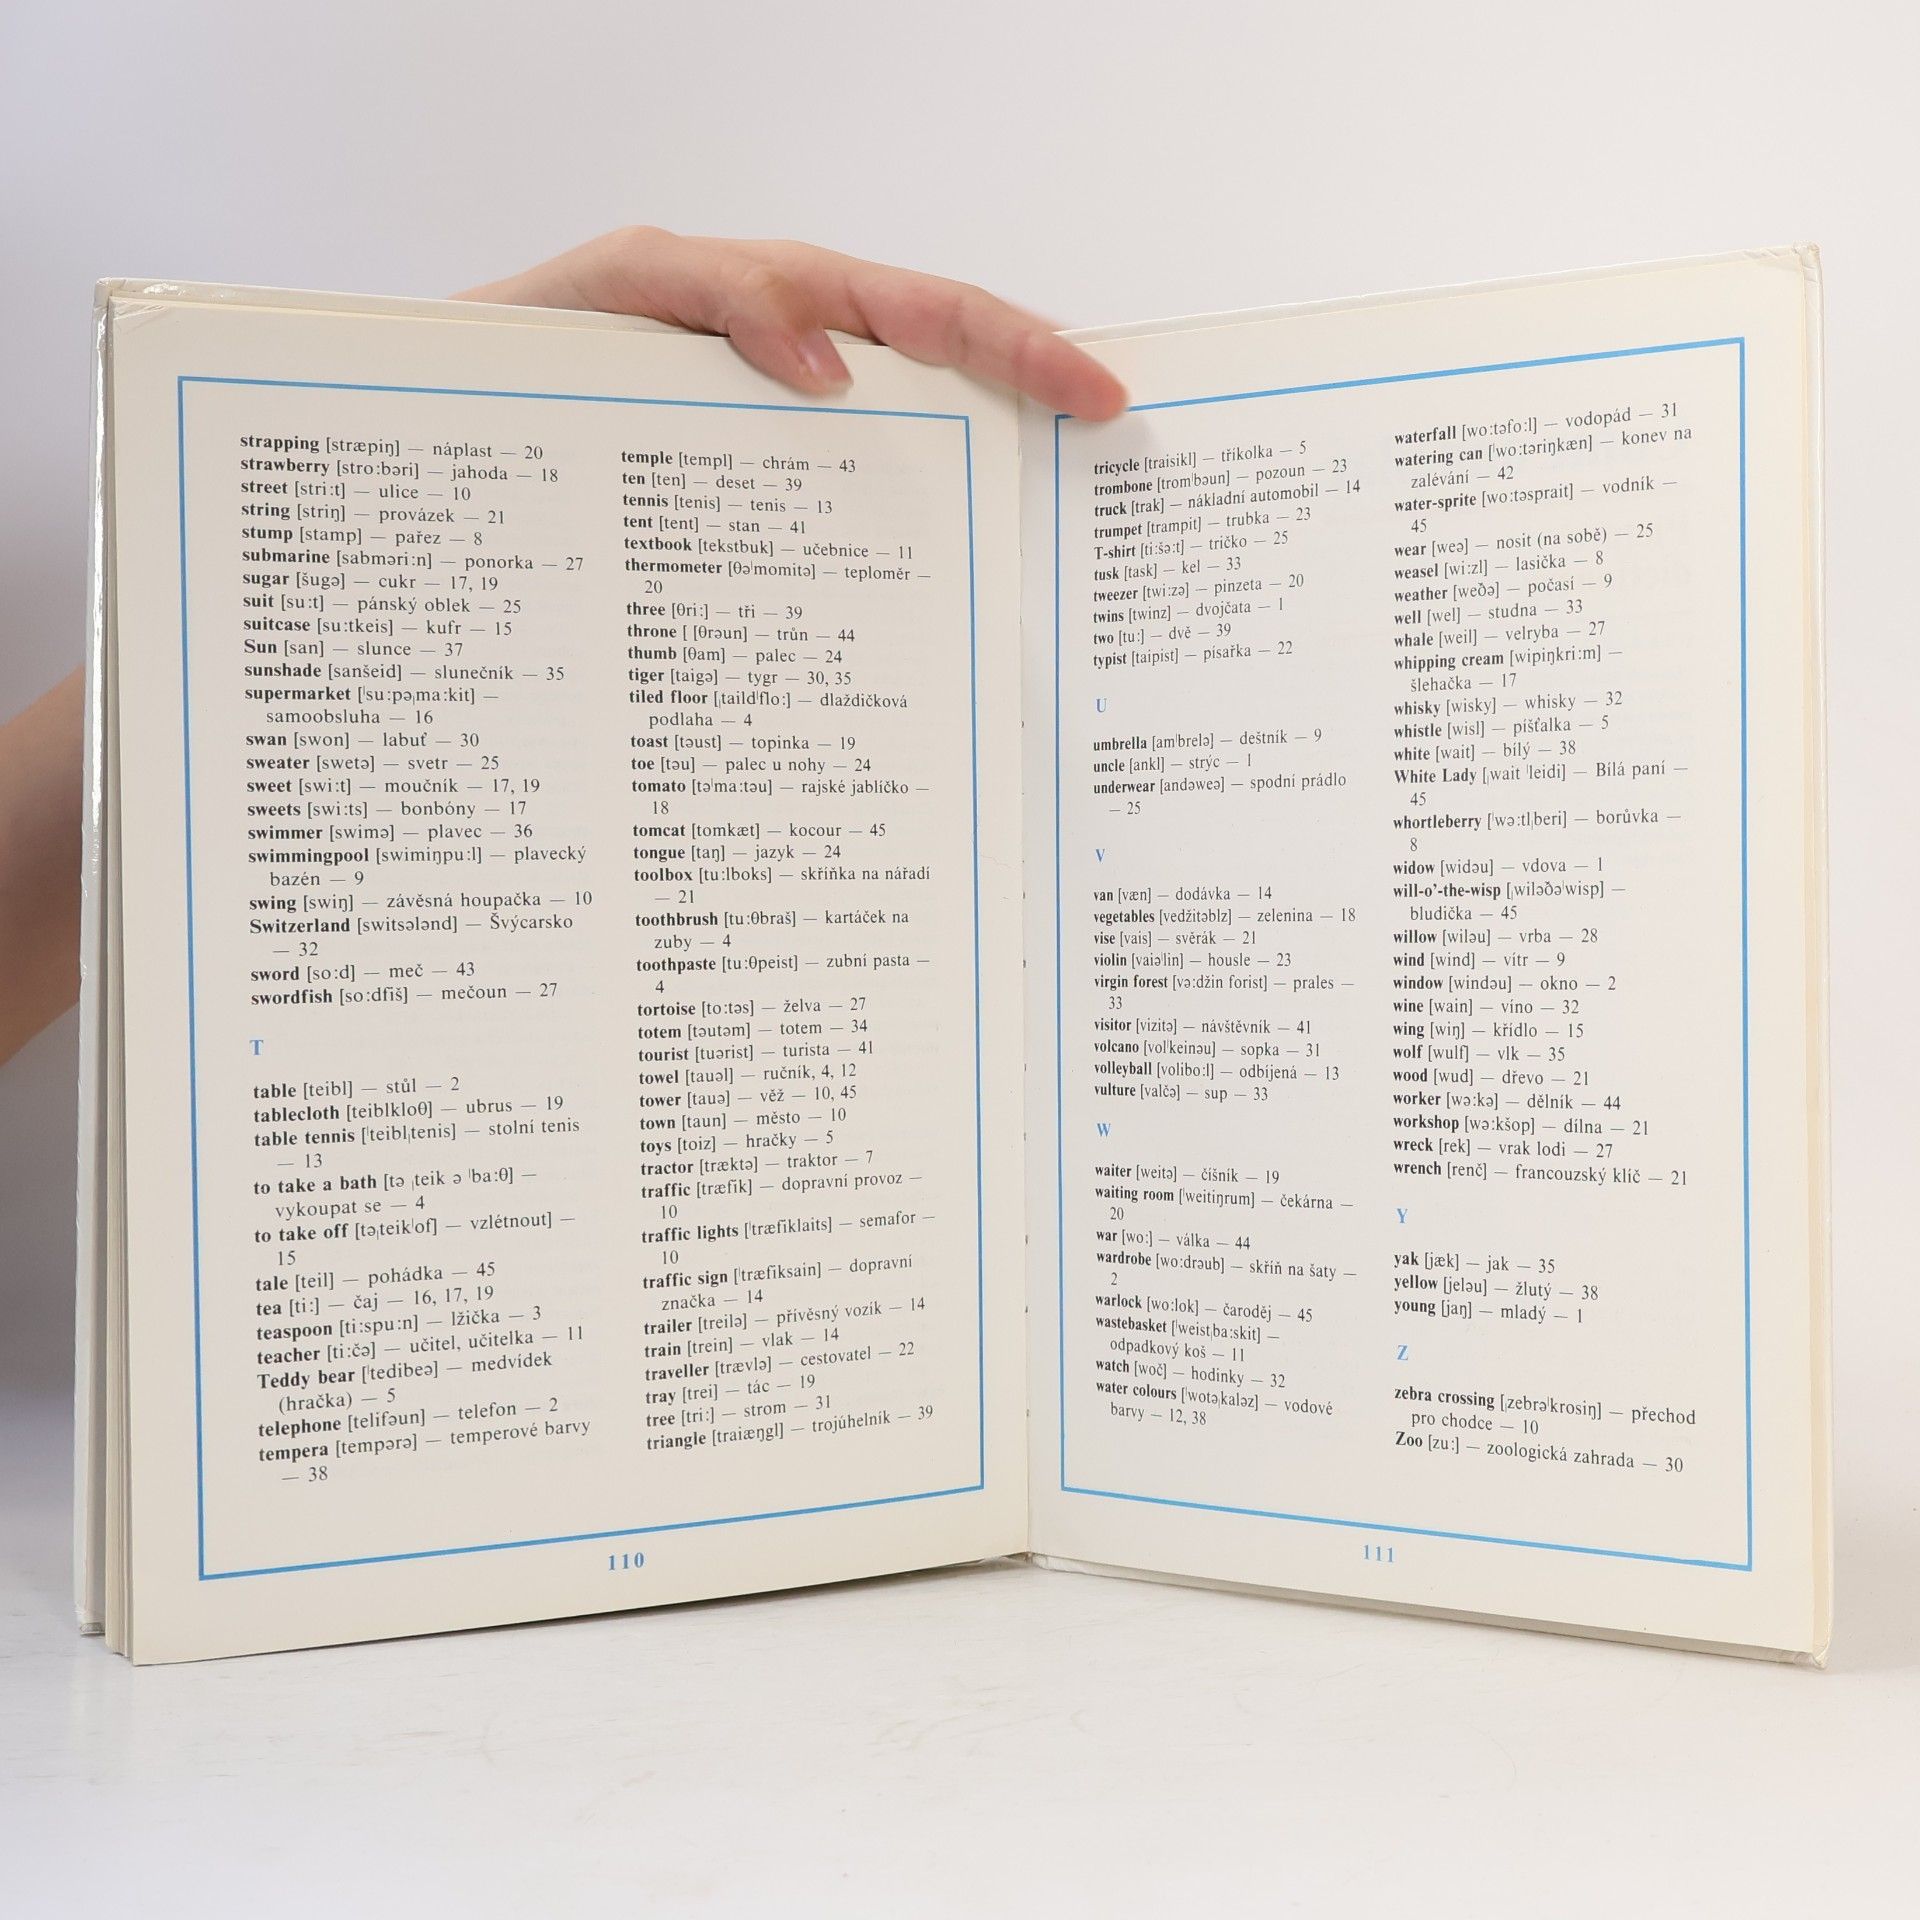 strapping [stræpiŋ] — náplast — 20
strawberry [stro:bəri] — jahoda — 18
street [stri:t] — ulice — 10
string [striŋ] — provázek — 21
stump [stamp] — pařez — 8
submarine [sabməri:n] — ponorka — 27
sugar [šugə] — cukr — 17, 19
suit [su:t] — pánský oblek — 25
suitcase [su:tkeis] — kufr — 15
Sun [san] — slunce — 37
sunshade [sanšeid] — slunečník — 35
supermarket [ˈsu:pəˌma:kit] —
samoobsluha — 16
swan [swon] — labuť — 30
sweater [swetə] — svetr — 25
sweet [swi:t] — moučník — 17, 19
sweets [swi:ts] — bonbóny — 17
swimmer [swimə] — plavec — 36
swimmingpool [swimiŋpu:l] — plavecký
bazén — 9
swing [swiŋ] — závěsná houpačka — 10
Switzerland [switsələnd] — Švýcarsko
— 32
sword [so:d] — meč — 43
swordfish [so:dfiš] — mečoun — 27
T
table [teibl] — stůl — 2
tablecloth [teiblkloθ] — ubrus — 19
table tennis [ˈteiblˌtenis] — stolní tenis
— 13
to take a bath [tə ˌteik ə ˈba:θ] —
vykoupat se — 4
to take off [təˌteikˈof] — vzlétnout] —
15
tale [teil] — pohádka — 45
tea [ti:] — čaj — 16, 17, 19
teaspoon [ti:spu:n] — lžička — 3
teacher [ti:čə] — učitel, učitelka — 11
Teddy bear [ˈtedibeə] — medvídek
(hračka) — 5
telephone [telifəun] — telefon — 2
tempera [tempərə] — temperové barvy
— 38
temple [templ] — chrám — 43
ten [ten] — deset — 39
tennis [tenis] — tenis — 13
tent [tent] — stan — 41
textbook [tekstbuk] — učebnice — 11
thermometer [θəˈmomitə] — teploměr —
20
three [θri:] — tři — 39
throne [ [θrəun] — trůn — 44
thumb [θam] — palec — 24
tiger [taigə] — tygr — 30, 35
tiled floor [ˌtaildˈflo:] — dlaždičková
podlaha — 4
toast [təust] — topinka — 19
toe [təu] — palec u nohy — 24
tomato [təˈma:təu] — rajské jablíčko —
18
tomcat [tomkæt] — kocour — 45
tongue [taŋ] — jazyk — 24
toolbox [tu:lboks] — skříňka na nářadí
— 21
toothbrush [tu:θbraš] — kartáček na
zuby — 4
toothpaste [tu:θpeist] — zubní pasta —
4
tortoise [to:təs] — želva — 27
totem [təutəm] — totem — 34
tourist [tuərist] — turista — 41
towel [tauəl] — ručník, 4, 12
tower [tauə] — věž — 10, 45
town [taun] — město — 10
toys [toiz] — hračky — 5
tractor [træktə] — traktor — 7
traffic [træfik] — dopravní provoz —
10
traffic lights [ˈtræfiklaits] — semafor —
10
traffic sign [ˈtræfiksain] — dopravní
značka — 14
trailer [treilə] — přívěsný vozík — 14
train [trein] — vlak — 14
traveller [trævlə] — cestovatel — 22
tray [trei] — tác — 19
tree [tri:] — strom — 31
triangle [traiæŋgl] — trojúhelník — 39
110
tricycle [traisikl] — tříkolka — 5
trombone [tromˈbəun] — pozoun — 23
truck [trak] — nákladní automobil — 14
trumpet [trampit] — trubka — 23
T-shirt [ti:šə:t] — tričko — 25
tusk [task] — kel — 33
tweezer [twi:zə] — pinzeta — 20
twins [twinz] — dvojčata — 1
two [tu:] — dvě — 39
typist [taipist] — písařka — 22
U
umbrella [amˈbrelə] — deštník — 9
uncle [ankl] — strýc — 1
underwear [andəweə] — spodní prádlo
— 25
V
van [væn] — dodávka — 14
vegetables [vedžitəblz] — zelenina — 18
vise [vais] — svěrák — 21
violin [vaiəˈlin] — housle — 23
virgin forest [və:džin forist] — prales —
33
visitor [vizitə] — návštěvník — 41
volcano [volˈkeinəu] — sopka — 31
volleyball [volibo:l] — odbíjená — 13
vulture [valčə] — sup — 33
W
waiter [weitə] — číšník — 19
waiting room [ˈweitiŋrum] — čekárna —
20
war [wo:] — válka — 44
wardrobe [wo:drəub] — skříň na šaty —
2
warlock [wo:lok] — čaroděj — 45
wastebasket [ˈweistˌba:skit] —
odpadkový koš — 11
watch [woč] — hodinky — 32
water colours [ˈwotəˌkaləz] — vodové
barvy — 12, 38
waterfall [wo:təfo:l] — vodopád — 31
watering can [ˈwo:təriŋkæn] — konev na
zalévání — 42
water-sprite [wo:təsprait] — vodník —
45
wear [weə] — nosit (na sobě) — 25
weasel [wi:zl] — lasička — 8
weather [weðə] — počasí — 9
well [wel] — studna — 33
whale [weil] — velryba — 27
whipping cream [wipiŋkri:m] —
šlehačka — 17
whisky [wisky] — whisky — 32
whistle [wisl] — píšťalka — 5
white [wait] — bílý — 38
White Lady [ˌwait ˈleidi] — Bílá paní —
45
whortleberry [ˈwə:tlˌberi] — borůvka —
8
widow [widəu] — vdova — 1
will-o’-the-wisp [ˌwiləðəˈwisp] —
bludička — 45
willow [wiləu] — vrba — 28
wind [wind] — vítr — 9
window [windəu] — okno — 2
wine [wain] — víno — 32
wing [wiŋ] — křídlo — 15
wolf [wulf] — vlk — 35
wood [wud] — dřevo — 21
worker [wə:kə] — dělník — 44
workshop [wə:kšop] — dílna — 21
wreck [rek] — vrak lodi — 27
wrench [renč] — francouzský klíč — 21
Y
yak [jæk] — jak — 35
yellow [jeləu] — žlutý — 38
young [jaŋ] — mladý — 1
Z
zebra crossing [ˌzebrəˈkrosiŋ] — přechod
pro chodce — 10
Zoo [zu:] — zoologická zahrada — 30
111